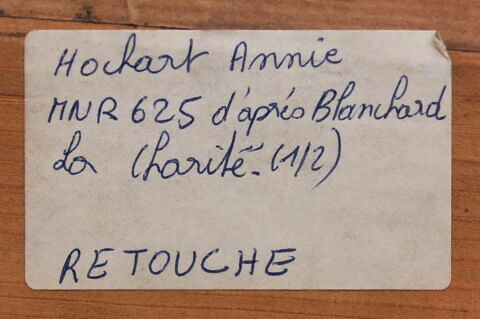 Hochart Annie
MNR 625 d'après Blanchard
La Charité - (1/2)
RETOUCHE